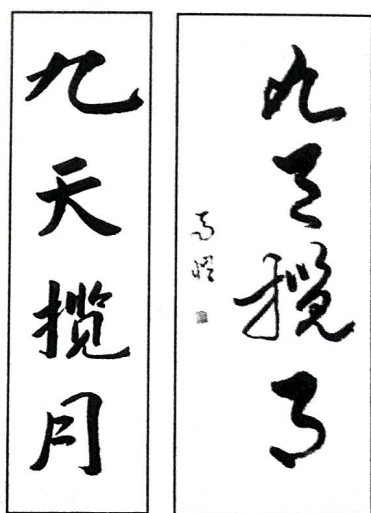 九天揽月
九天揽月